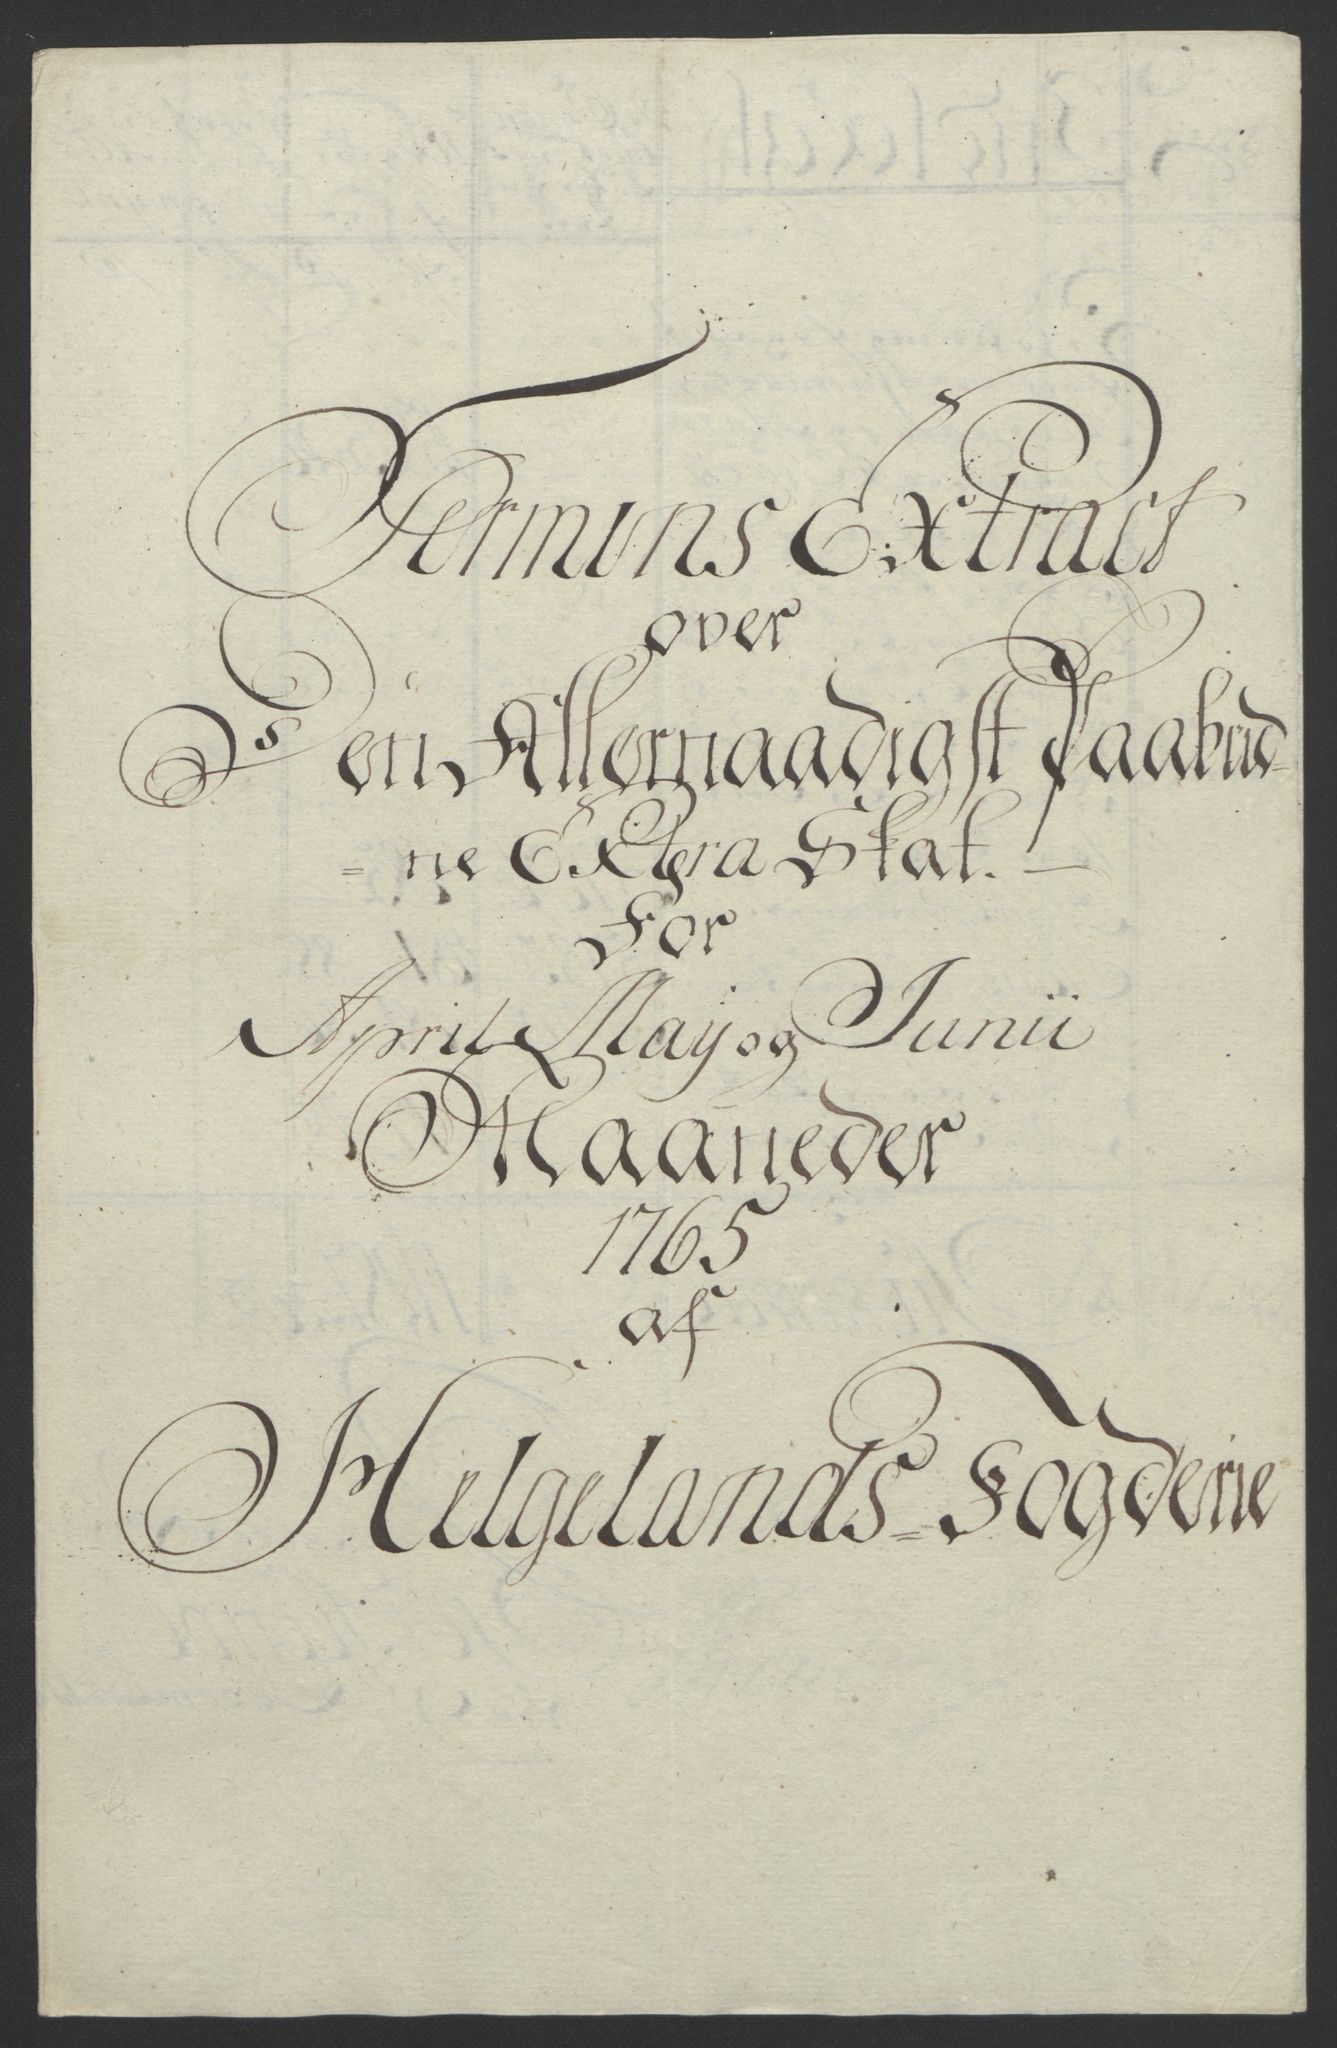 Termins Extract
over
Den Allernaadigst Paabud-
= ne Extra Skat. —
For
April, May og Junii
Maaneder
1765
af
Helgelands=Fogderie